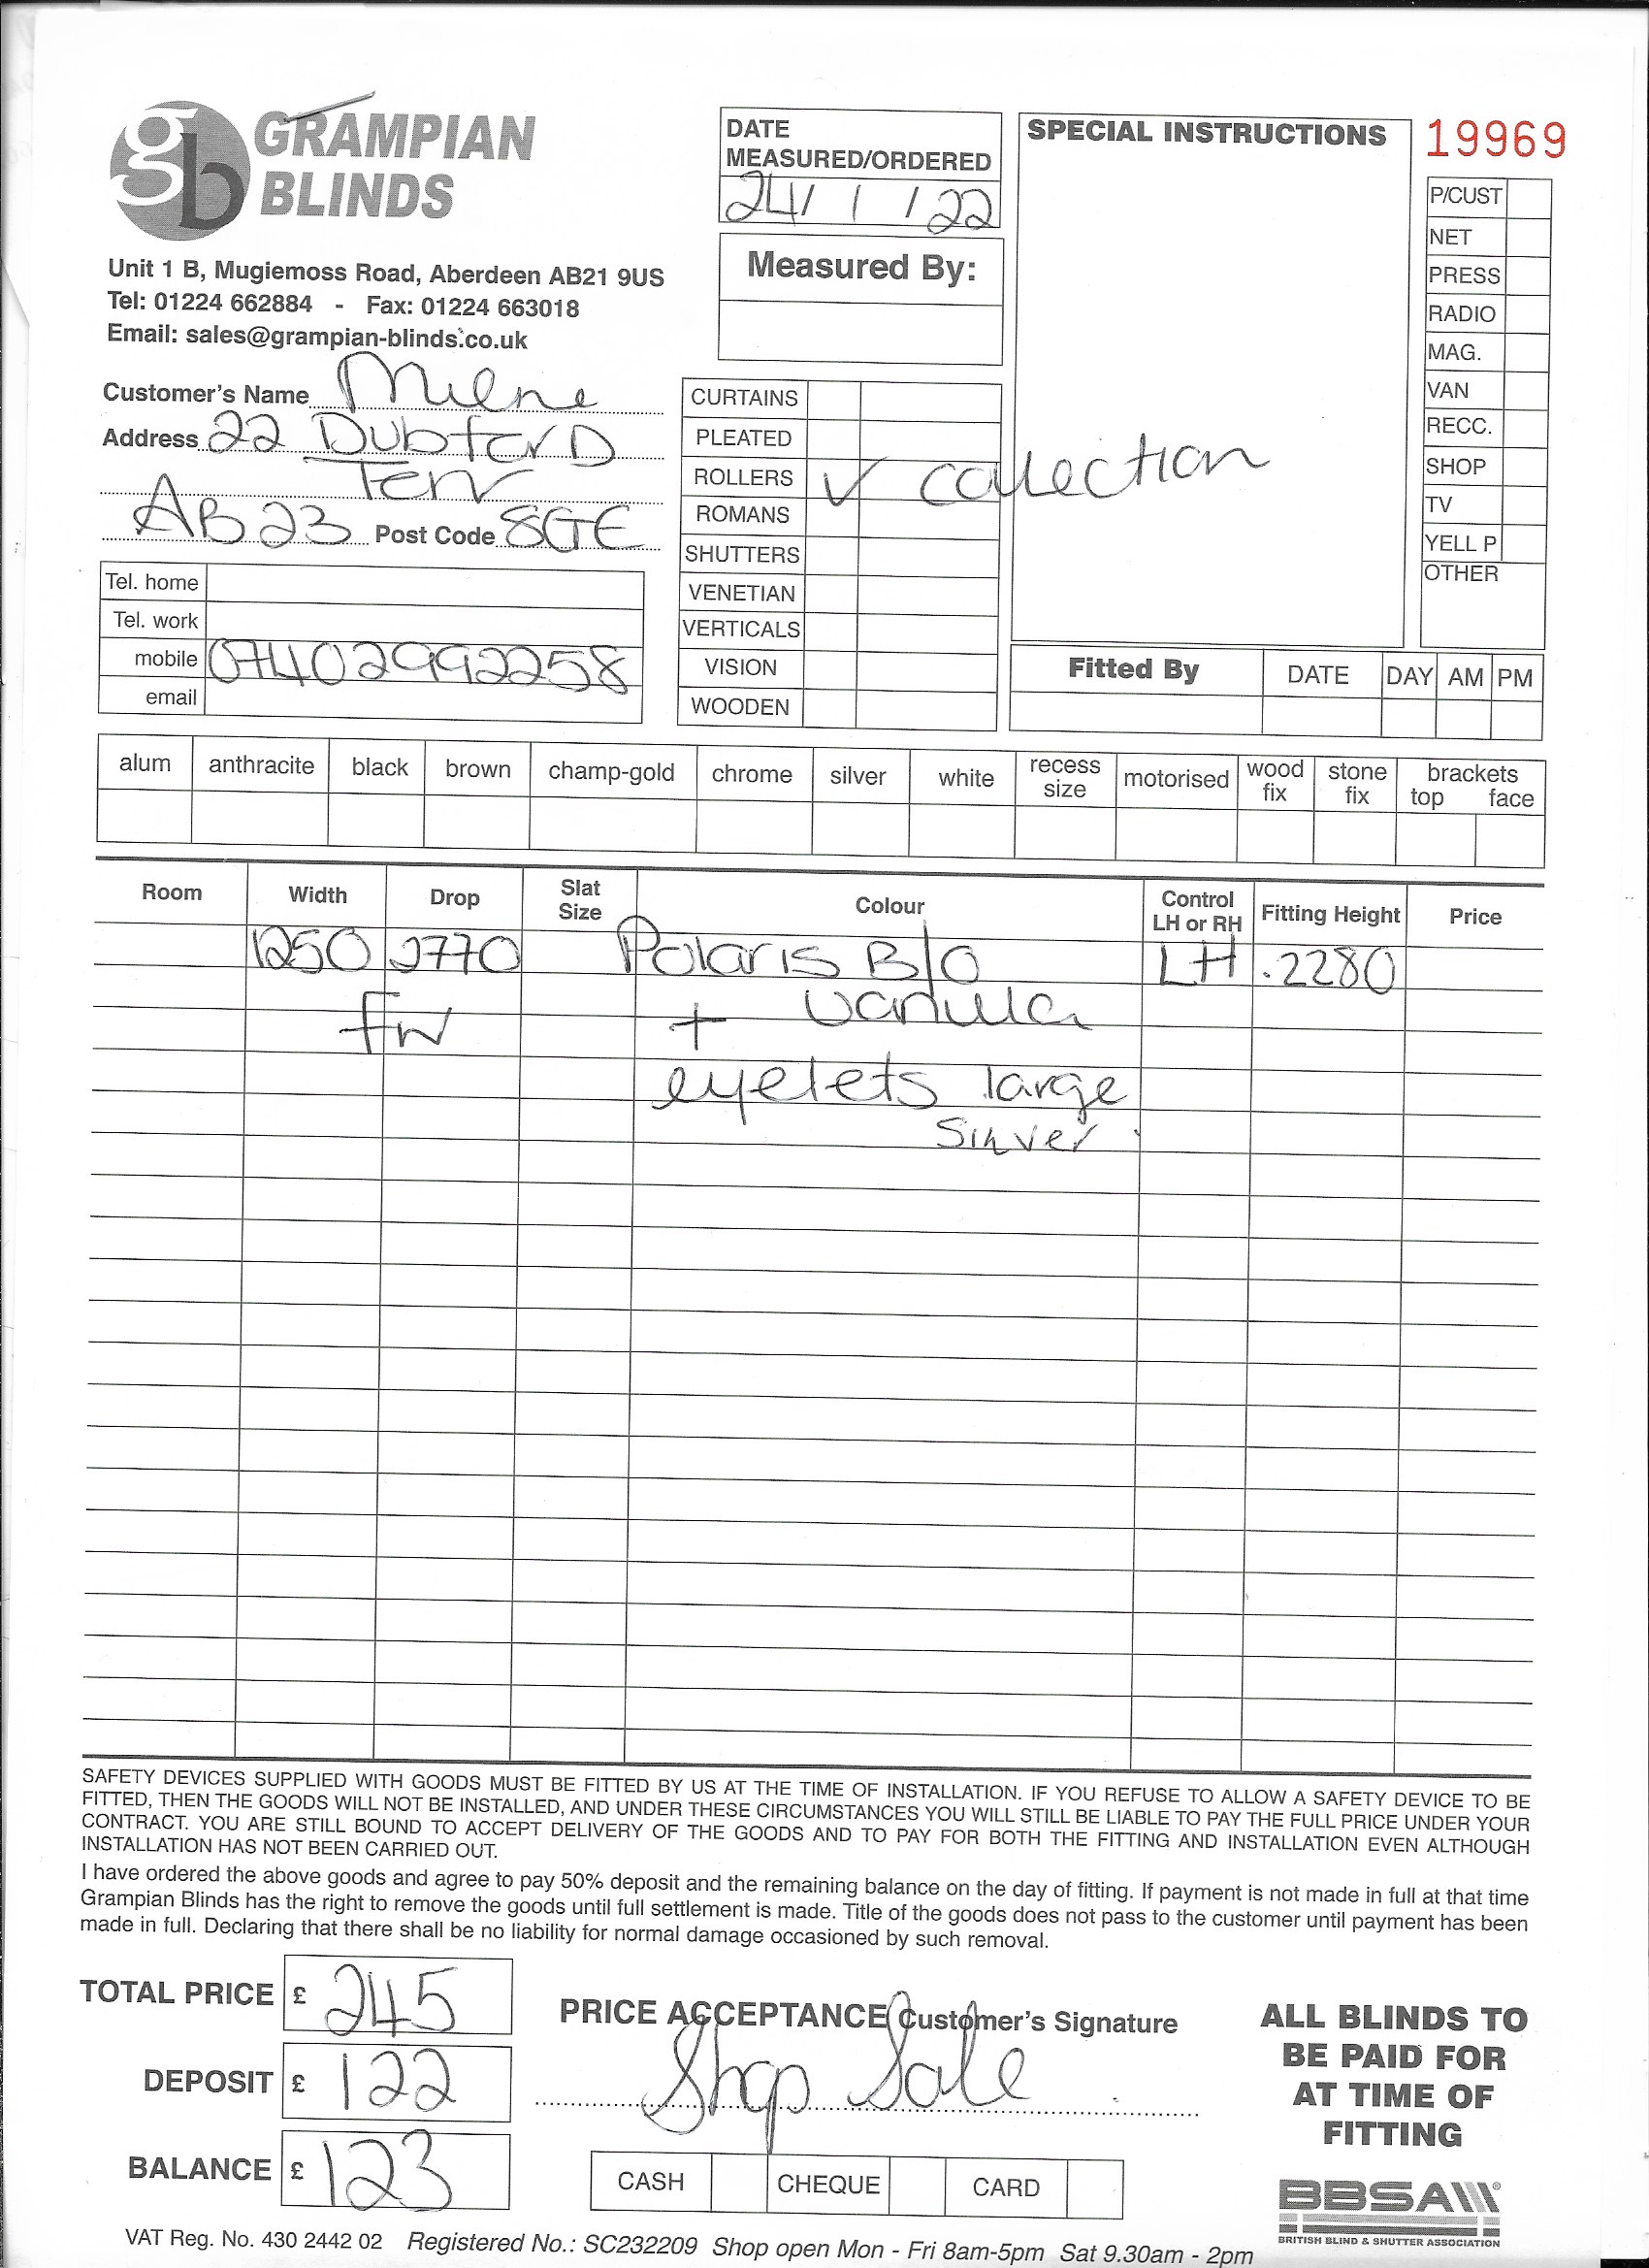 gb GRAMPIAN
BLINDS
Unit 1 B, Mugiemoss Road, Aberdeen AB21 9US
Tel: 01224 662884 - Fax: 01224 663018
Email: sales@grampian-blinds.co.uk
Customer's Name Milne
Address 22 Dubford
Terr
AB23 Post Code 8GE
Tel. home
Tel. work
mobile 07402992258
email
DATE
MEASURED/ORDERED
24/1/22
Measured By:
CURTAINS
PLEATED
ROLLERS ✓ collection
ROMANS
SHUTTERS
VENETIAN
VERTICALS
VISION
WOODEN
SPECIAL INSTRUCTIONS
19969
P/CUST
NET
PRESS
RADIO
MAG.
VAN
RECC.
SHOP
TV
YELL P
OTHER
Fitted By DATE DAY AM PM
alum anthracite black brown champ-gold chrome silver white recess size motorised wood fix stone fix brackets top face
Room Width Drop Slat Size Colour Control LH or RH Fitting Height Price
1250 2770 Polaris B/O LH .2280
FW + vanilla
eyelets large
silver
SAFETY DEVICES SUPPLIED WITH GOODS MUST BE FITTED BY US AT THE TIME OF INSTALLATION. IF YOU REFUSE TO ALLOW A SAFETY DEVICE TO BE
FITTED, THEN THE GOODS WILL NOT BE INSTALLED, AND UNDER THESE CIRCUMSTANCES YOU WILL STILL BE LIABLE TO PAY THE FULL PRICE UNDER YOUR
CONTRACT. YOU ARE STILL BOUND TO ACCEPT DELIVERY OF THE GOODS AND TO PAY FOR BOTH THE FITTING AND INSTALLATION EVEN ALTHOUGH
INSTALLATION HAS NOT BEEN CARRIED OUT.
I have ordered the above goods and agree to pay 50% deposit and the remaining balance on the day of fitting. If payment is not made in full at that time
Grampian Blinds has the right to remove the goods until full settlement is made. Title of the goods does not pass to the customer until payment has been
made in full. Declaring that there shall be no liability for normal damage occasioned by such removal.
TOTAL PRICE £ 245
DEPOSIT £ 122
BALANCE £ 123
PRICE ACCEPTANCE Customer's Signature
Shop Sale
CASH CHEQUE CARD
ALL BLINDS TO
BE PAID FOR
AT TIME OF
FITTING
BBSA
BRITISH BLIND & SHUTTER ASSOCIATION
VAT Reg. No. 430 2442 02 Registered No.: SC232209 Shop open Mon - Fri 8am-5pm Sat 9.30am - 2pm